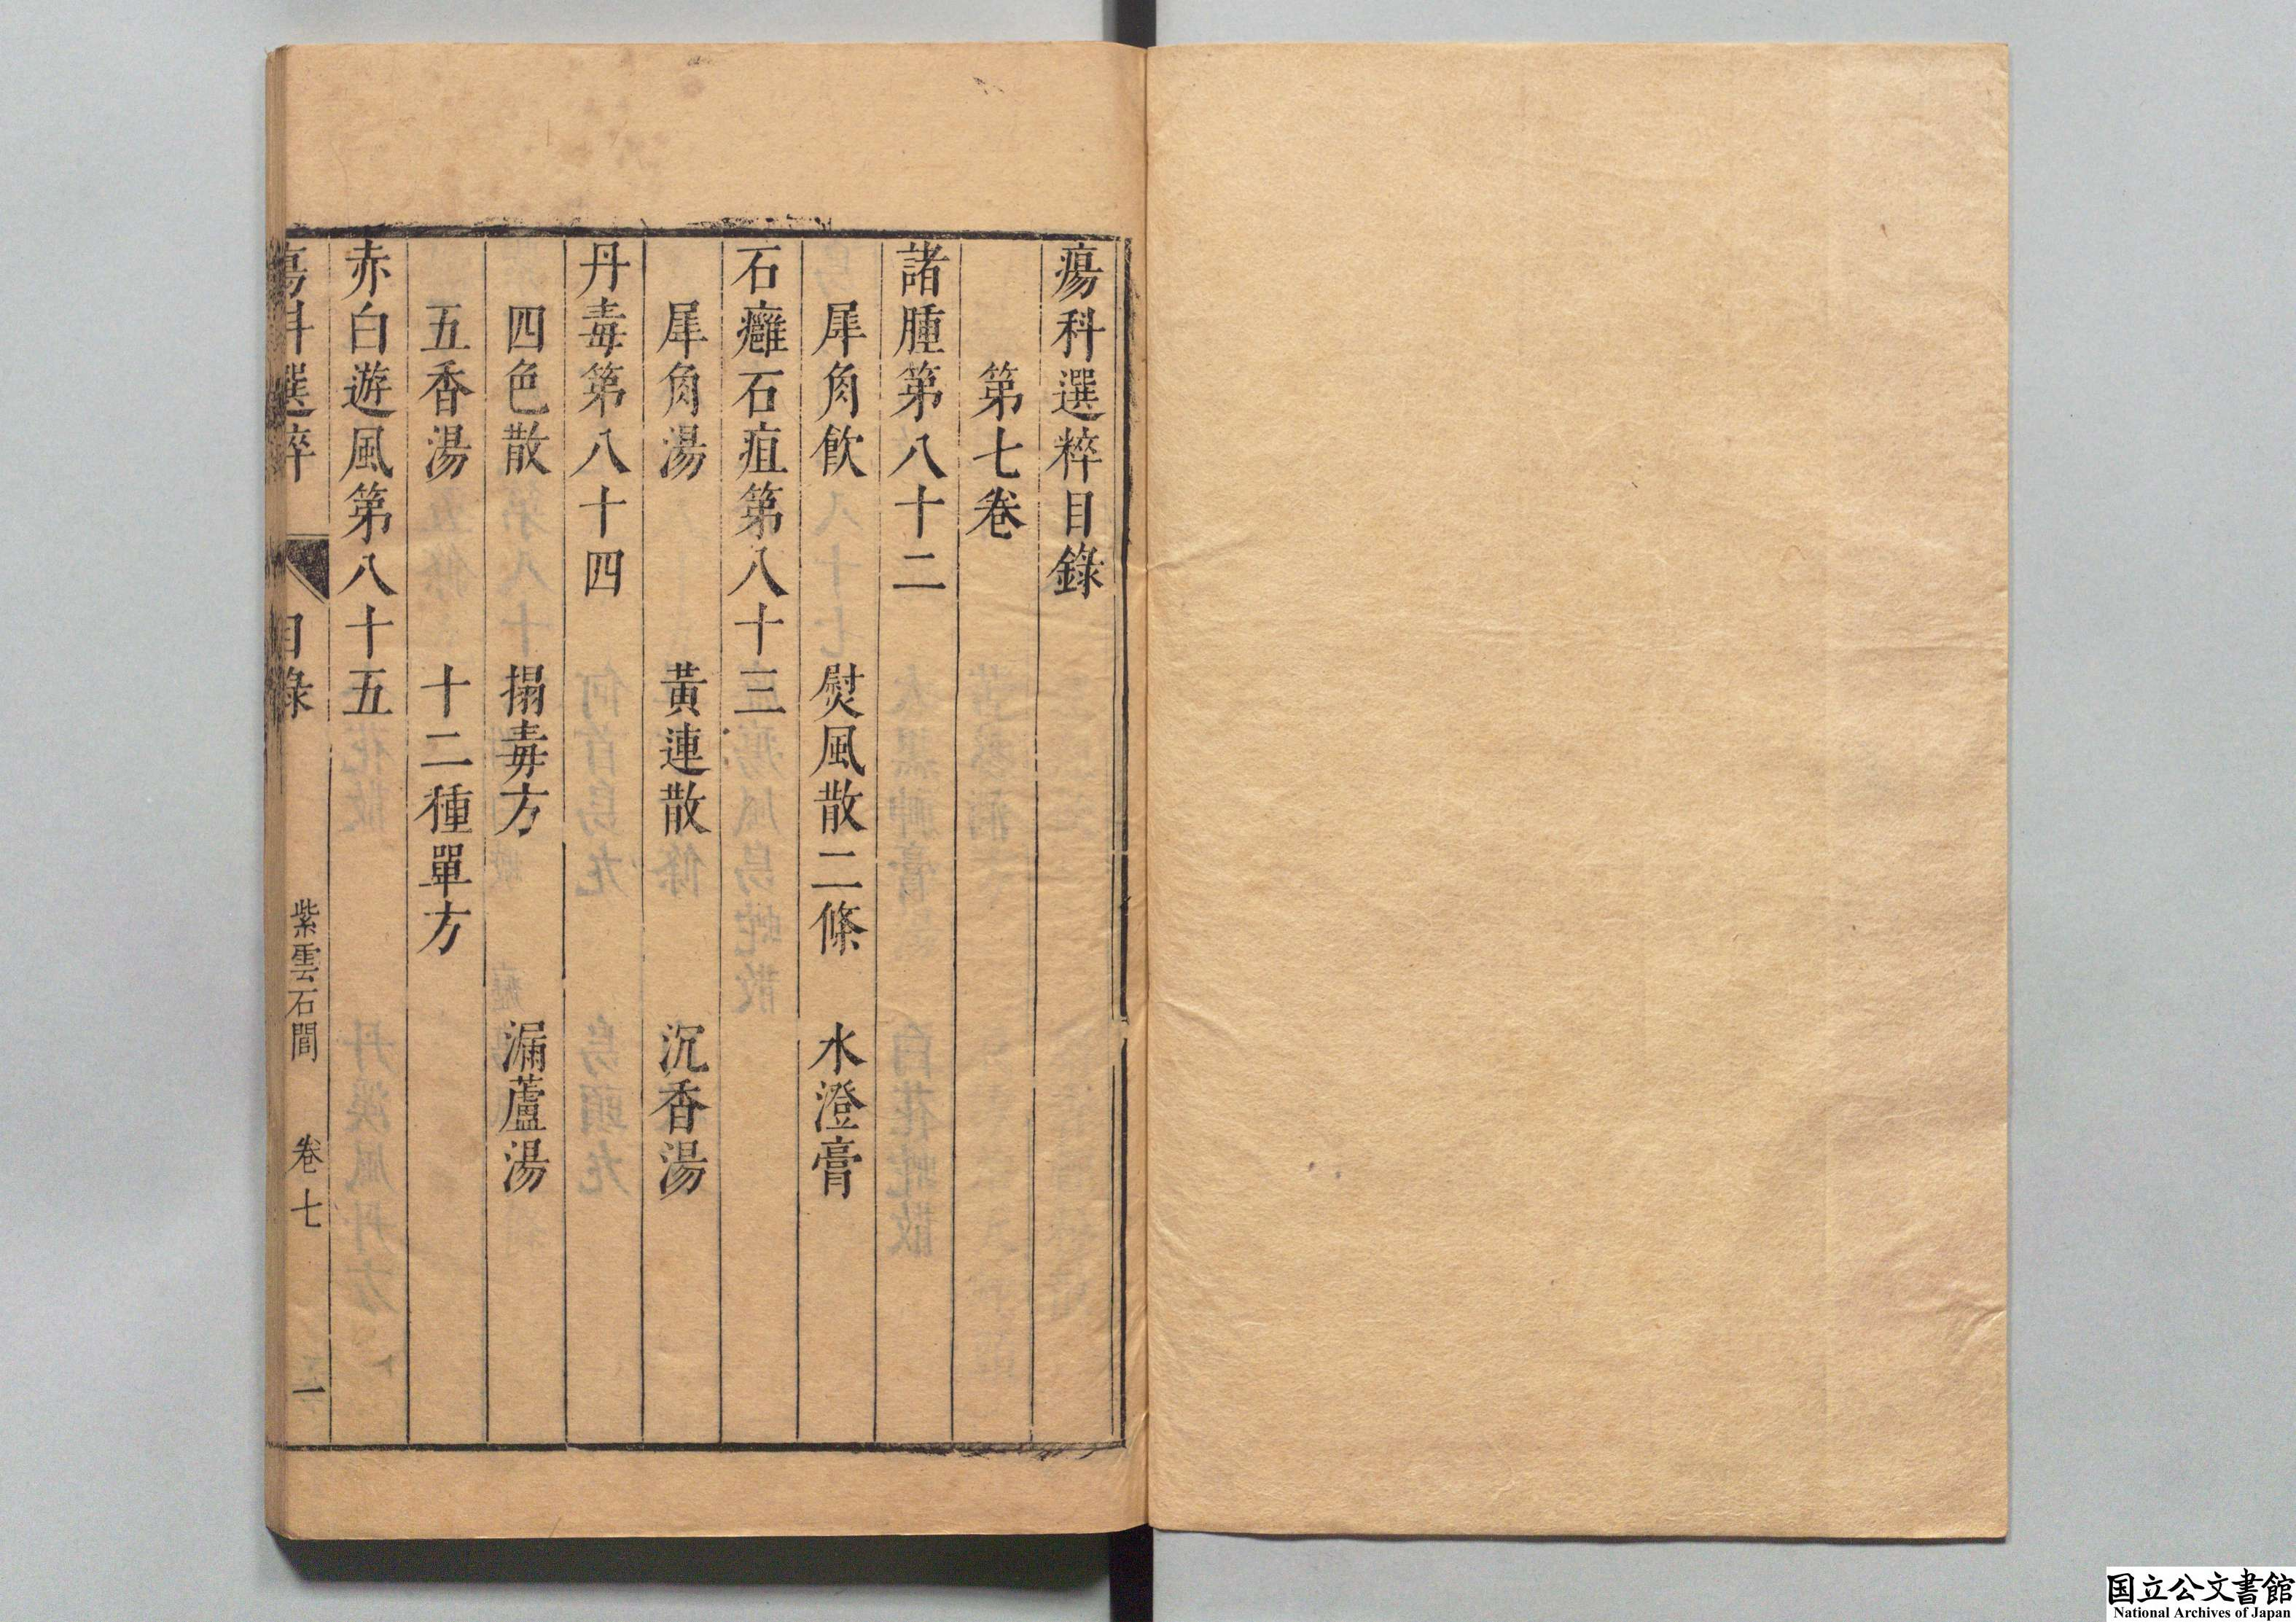 瘍科選粹目錄
第七卷
諸腫第八十二
犀角飲　熨風散二條　水澄膏
石癰石疽第八十三
犀角湯　黃連散　沉香湯
丹毒第八十四
四色散　搨毒方　漏蘆湯
五香湯　十二種單方
赤白遊風第八十五
瘍科選粹　目錄　紫雲石閭　卷七　一
国立公文書館
National Archives of Japan